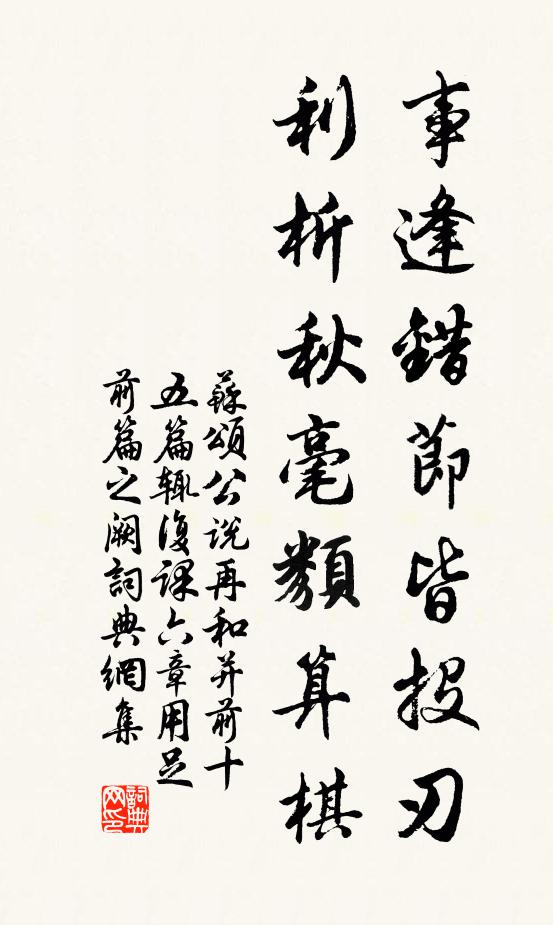 事逢錯節皆投刃
利析秋毫類算棋
蘇頌公説再和并前十
五篇輒復課六章用足
前篇之阙詞典網集
詞典网印